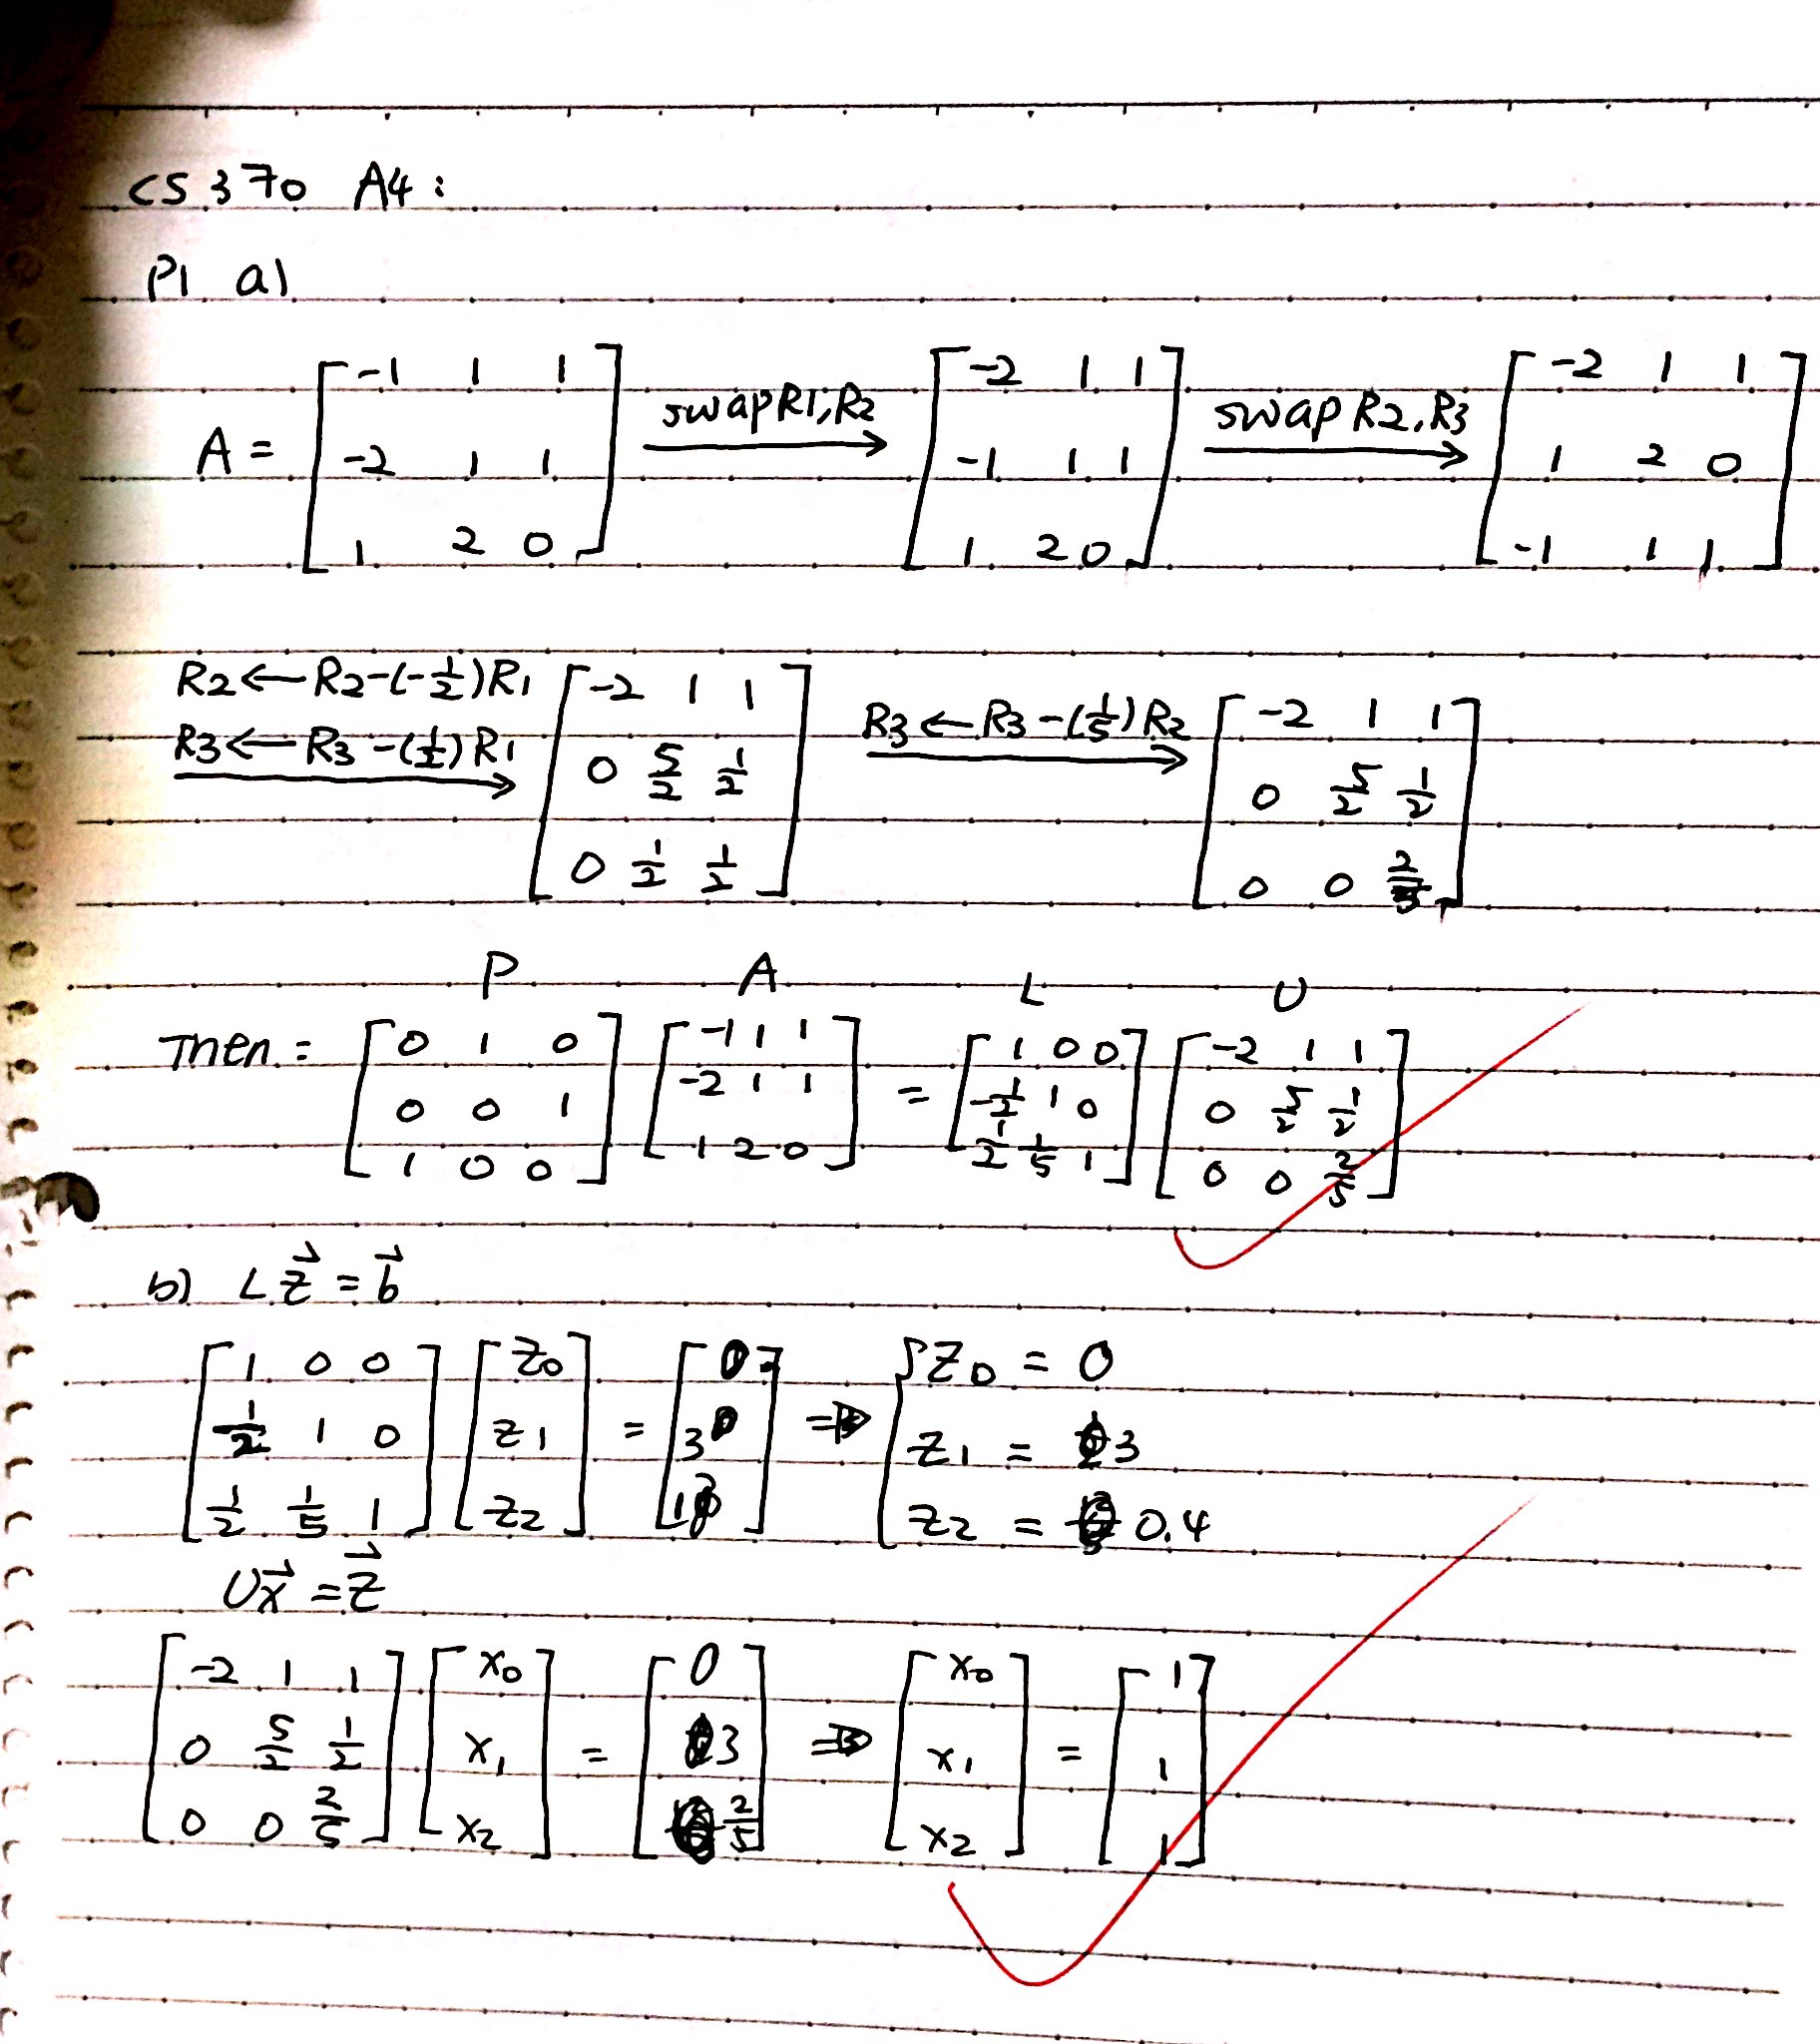 CS 370 A4:
P1 a)
A = [ -1 1 1 ; -2 1 1 ; 1 2 0 ] swap R1, R2 → [ -2 1 1 ; -1 1 1 ; 1 2 0 ] swap R2, R3 → [ -2 1 1 ; 1 2 0 ; -1 1 1 ]
R2 ← R2 - (-1/2) R1
R3 ← R3 - (1/2) R1 → [ -2 1 1 ; 0 5/2 1/2 ; 0 1/2 1/2 ] R3 ← R3 - (1/5) R2 → [ -2 1 1 ; 0 5/2 1/2 ; 0 0 2/5 ]
P A L U
Then: [ 0 1 0 ; 0 0 1 ; 1 0 0 ] [ -1 1 1 ; -2 1 1 ; 1 2 0 ] = [ 1 0 0 ; -1/2 1 0 ; 1/2 1/5 1 ] [ -2 1 1 ; 0 5/2 1/2 ; 0 0 2/5 ]
b) L z⃗ = b⃗
[ 1 0 0 ; -1/2 1 0 ; 1/2 1/5 1 ] [ z0 ; z1 ; z2 ] = [ 0 ; 3 ; 1 ] ⇒ { z0 = 0 ; z1 = 3 ; z2 = 0.4
U x⃗ = z⃗
[ -2 1 1 ; 0 5/2 1/2 ; 0 0 2/5 ] [ x0 ; x1 ; x2 ] = [ 0 ; 3 ; 2/5 ] ⇒ [ x0 ; x1 ; x2 ] = [ 1 ; 1 ; 1 ]